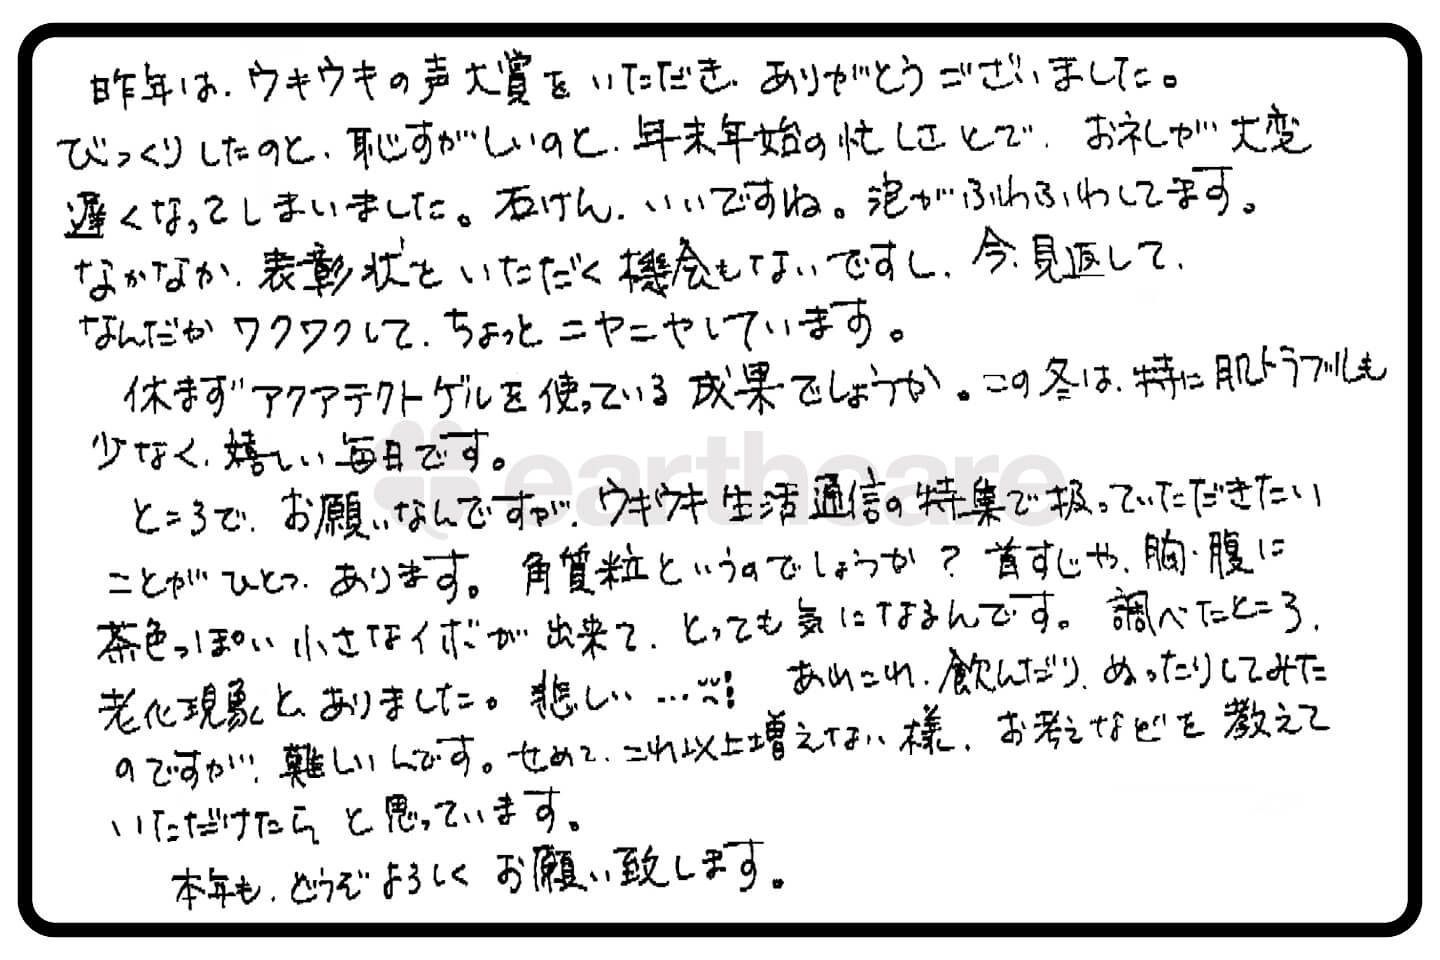 昨年は、ウキウキの声大賞をいただき、ありがとうございました。
びっくりしたのと、恥すがしいのと、年末年始の忙しさとで、お礼が大変
遅くなってしまいました。石けん、いいですね。泡がふわふわしてます。
なかなか、表彰状をいただく機会もないですし、今、見返して、
なんだかワクワクして、ちょっとニヤニヤしています。
休まずアクアテクトゲルを使っている成果でしょうか。この冬は、特に肌トラブルも
少なく、嬉しい毎日です。
earthcare
ところで、お願いなんですが、ウキウキ生活通信の特集で扱っていただきたい
ことがひとつ、あります。角質粒というのでしょうか？首すじや、胸・腹に
茶色っぽい小さなイボが出来て、とっても気になるんです。調べたところ、
老化現象と、ありました。悲しい… あれこれ、飲んだり、ぬったりしてみた
のですが、難しいんです。せめて、これ以上増えない様、お考えなどを教えて
いただけたら、と思っています。
本年も、どうぞよろしくお願い致します。